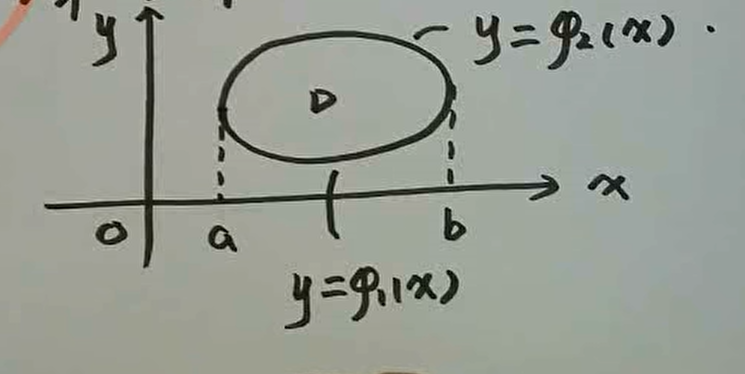 y
y=φ₂(x)
D
x
O
a
b
y=φ₁(x)